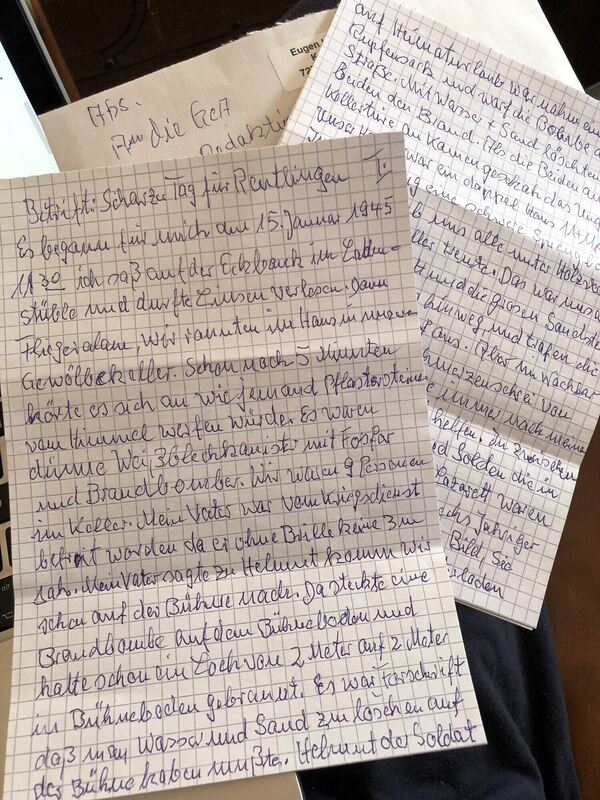 Betrift: Schwarzer Tag für Reutlingen I:
Es begann für mich am 15. Januar 1945
11.30 ich saß auf der Eckbank im
stüble und durfte Linsen verlesen. Dann
Fliegeralarm, wir rannten im Haus in unseren
Gewölbekeller. Schon nach 5 Minuten
hörte es sich an wie jemand Pflastersteine
vom Himmel werfen würde. Es waren
dünne Weißblechkanister mit Fosfor
und Brandbomber. Wir waren 9 Personen
im Keller. Mein Vater war vom Kriegsdienst
befreit worden da er ohne Brille keine 3m
sah. Mein Vater sagte zu Helmut komm wir
schau auf der Bühne nach. Da steckte eine
Brandbombe auf dem Bühneboden und
hatte schon ein Loch von 2 Meter auf 2 Meter
in Bühneboden gebrannt. Es war Forschrift
daß man Wasser und Sand zu löschen auf
der Bühne haben mußte. Helmut der Soldat
Abs.
An die GEA
Eugen
K
72
auf Heimaturlaub war nahm
Rupfensack und warf die Bombe
Straße. Mit Wasser + Sand löschten
Beiden den Brand. Als die Beiden
Kellertüre an kamen geschah das
war ein doppel Haus
eine schwere
uns alle unter
Das war
und die
hinweg und trafen die
Haus. Aber im Nachbar
von
immer nach
helfen. in zwischen
Soldaten die in
Lazarett waren
sechs Jähriger
Bild,